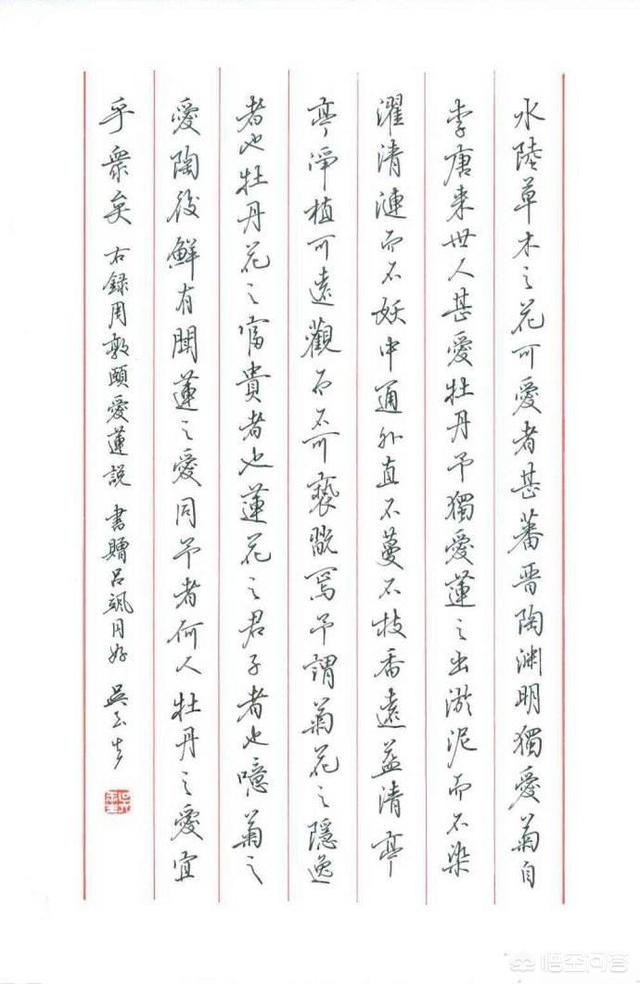 水陸草木之花可愛者甚蕃晋陶淵明獨愛菊自
李唐来世人甚愛牡丹予獨愛蓮之出淤泥而不染
濯清漣而不妖中通外直不蔓不枝香遠益清亭
亭淨植可遠觀而不可褻翫焉予謂菊花之隱逸
者也牡丹花之富貴者也蓮花之君子者也噫菊之
愛陶後鮮有聞蓮之愛同予者何人牡丹之愛宜
乎衆矣 右録周敦頤愛蓮説 書贈吕颯同好 吳玉生
悟空问答